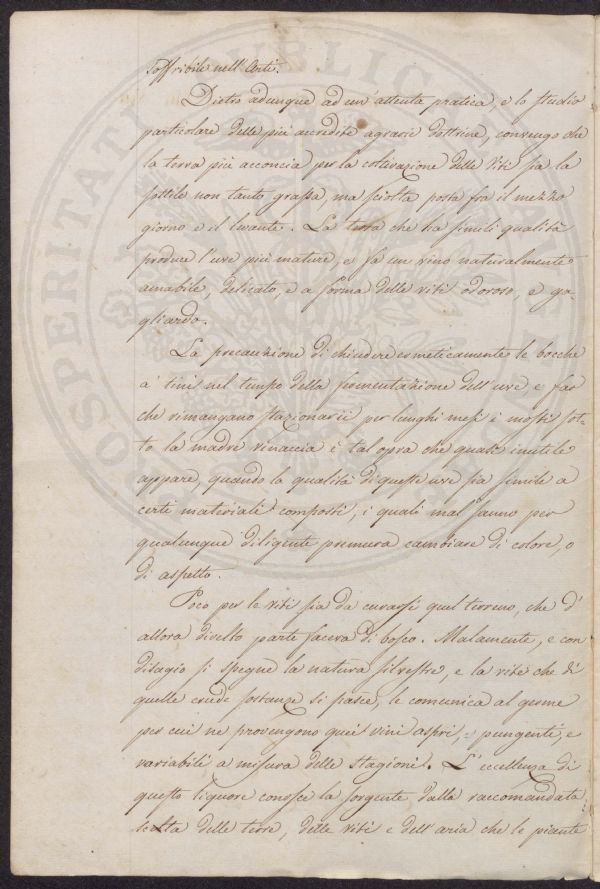 soffribile nell'Arti.
Dietro adunque ad un'attenta pratica e lo studio
particolare delle più accredite agrarie dottrine, convengo che
la terra più acconcia per la coltivazione delle Viti sia la
sottile non tanto grassa, ma sciolta posta fra il mezzo
giorno e il levante. La terra che ha simili qualità
produce l'uve più mature, e fa un vino naturalmente
amabile, delicato, e a forma delle viti odoroso, e ga-
gliardo.
La precauzione di chiudere ermeticamente le bocche
a' tini nel tempo della fermentazione dell'uve e far
che rimangano stazionarii per lunghi mesi i mosti sot-
to la madre vinaccia è tal opra che quasi inutile
appare, quando la qualità di queste uve sia simile a
certi materiali composti, i quali mal sanno per
qualunque diligente premura cambiare di colore, o
di aspetto.
Poco per le viti sia da curarsi quel terreno, che d'
allora divelto parte faceva di bosco. Malamente, e con
disagio si spegne la natura silvestre, e la vite che di
quelle crude sostanze si pasce, le comunica al germe
per cui ne provengono quei vini aspri, pungenti, e
variabili a misura delle stagioni. L'eccellenza di
questo liquore conosce la sorgente dalla raccomandata
scelta delle terre, delle viti e dell'aria che le
PROSPERITATI PUBLICAE